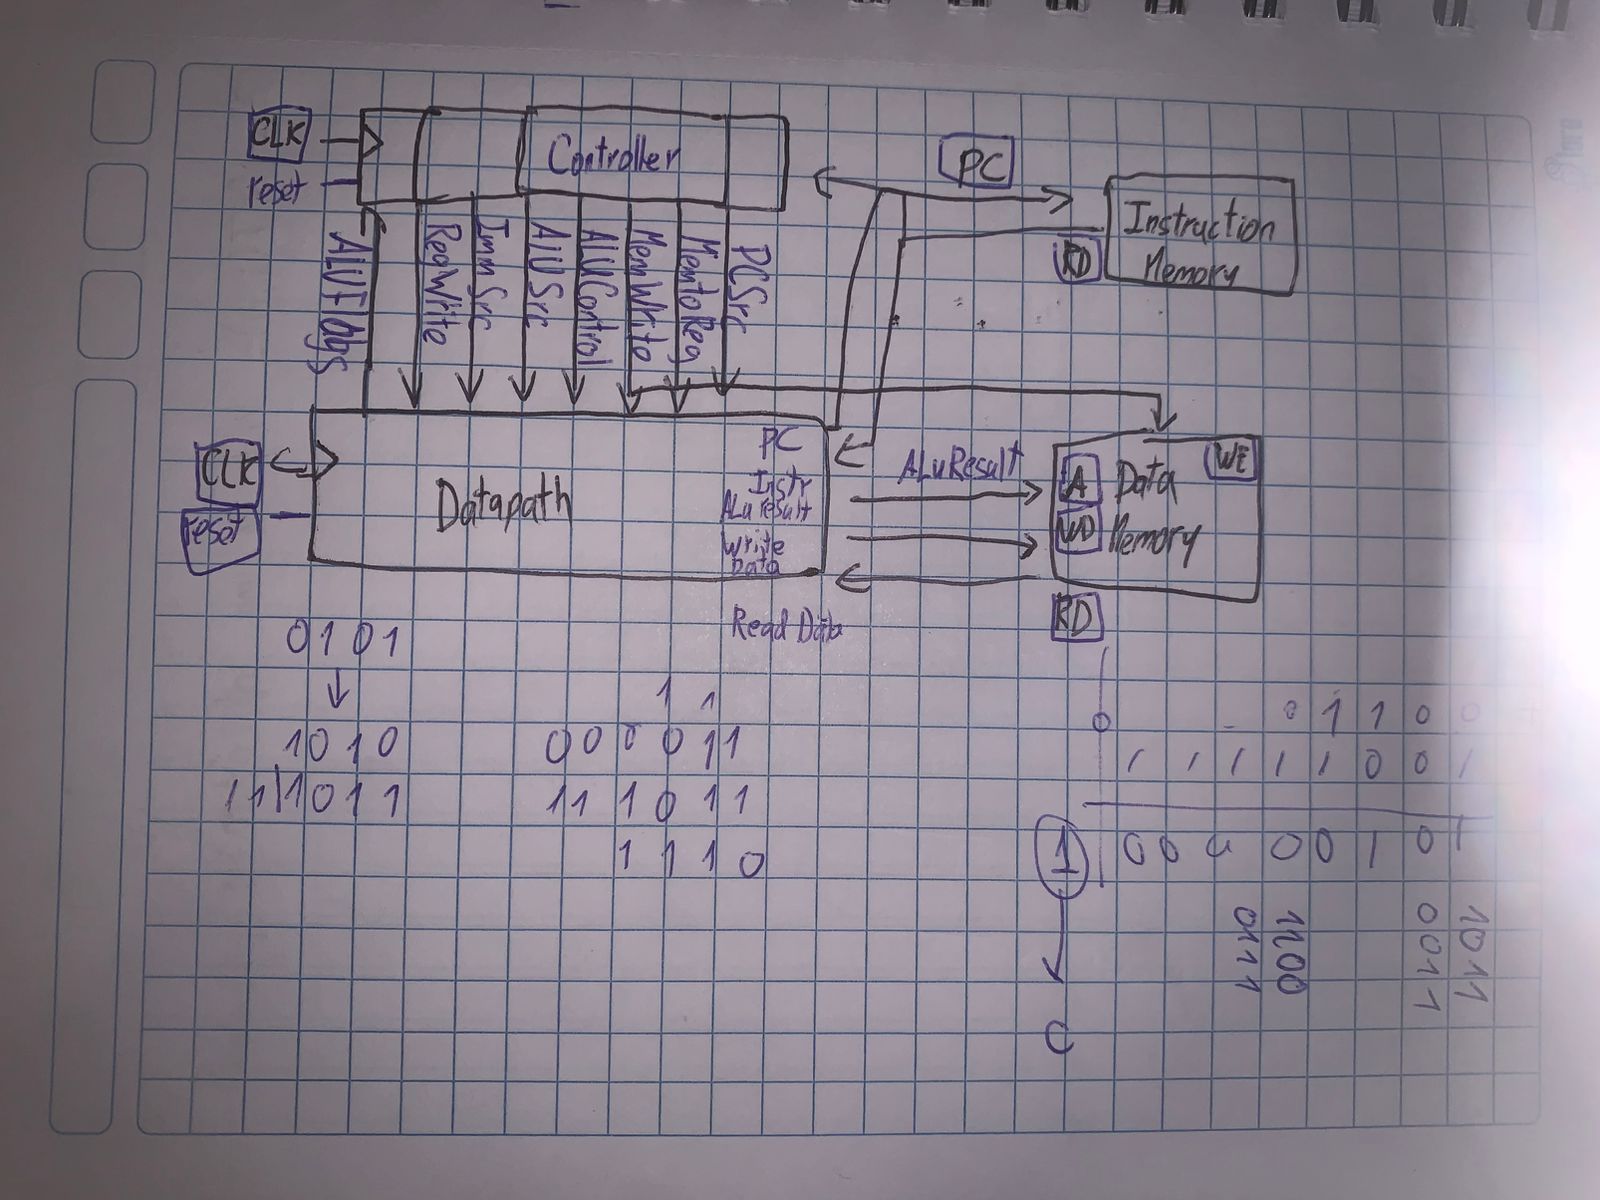 CLK
reset
Controller
PC
Instruction
Memory
RD
ALUFlags
RegWrite
ImmSrc
ALUSrc
ALUControl
MemWrite
MemtoReg
PCSrc
CLK
reset
Datapath
PC
Instr
ALuresult
Write
Data
Read Data
ALuResult
A
WD
WE
Data
Memory
RD
0101
1010
11 1011
1 1
000011
111011
1110
0 1 1 0 0
0
1 1 1 1 1 0 0 1
1 0 0 0 0 0 1 0 1
C
0111
1100
0011
1011